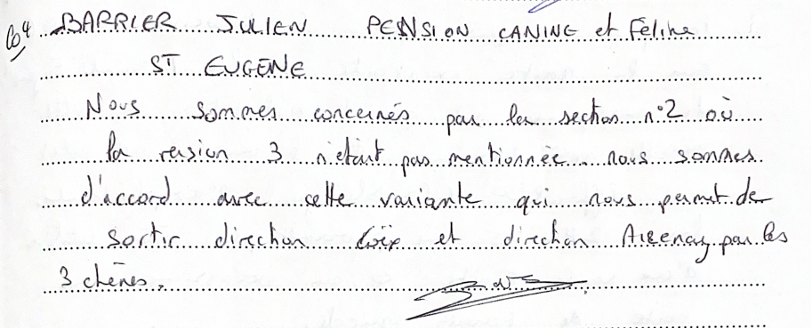 Co4 BARRIER JULIEN PENSION CANINE et Féline
ST EUGENE
Nous sommes concernés par la section n°2 où
la version 3 n'étant pas mentionnée. nous sommes
d'accord avec cette variante qui nous permet de
sortir direction et direction Aizenay par les
3 chênes.